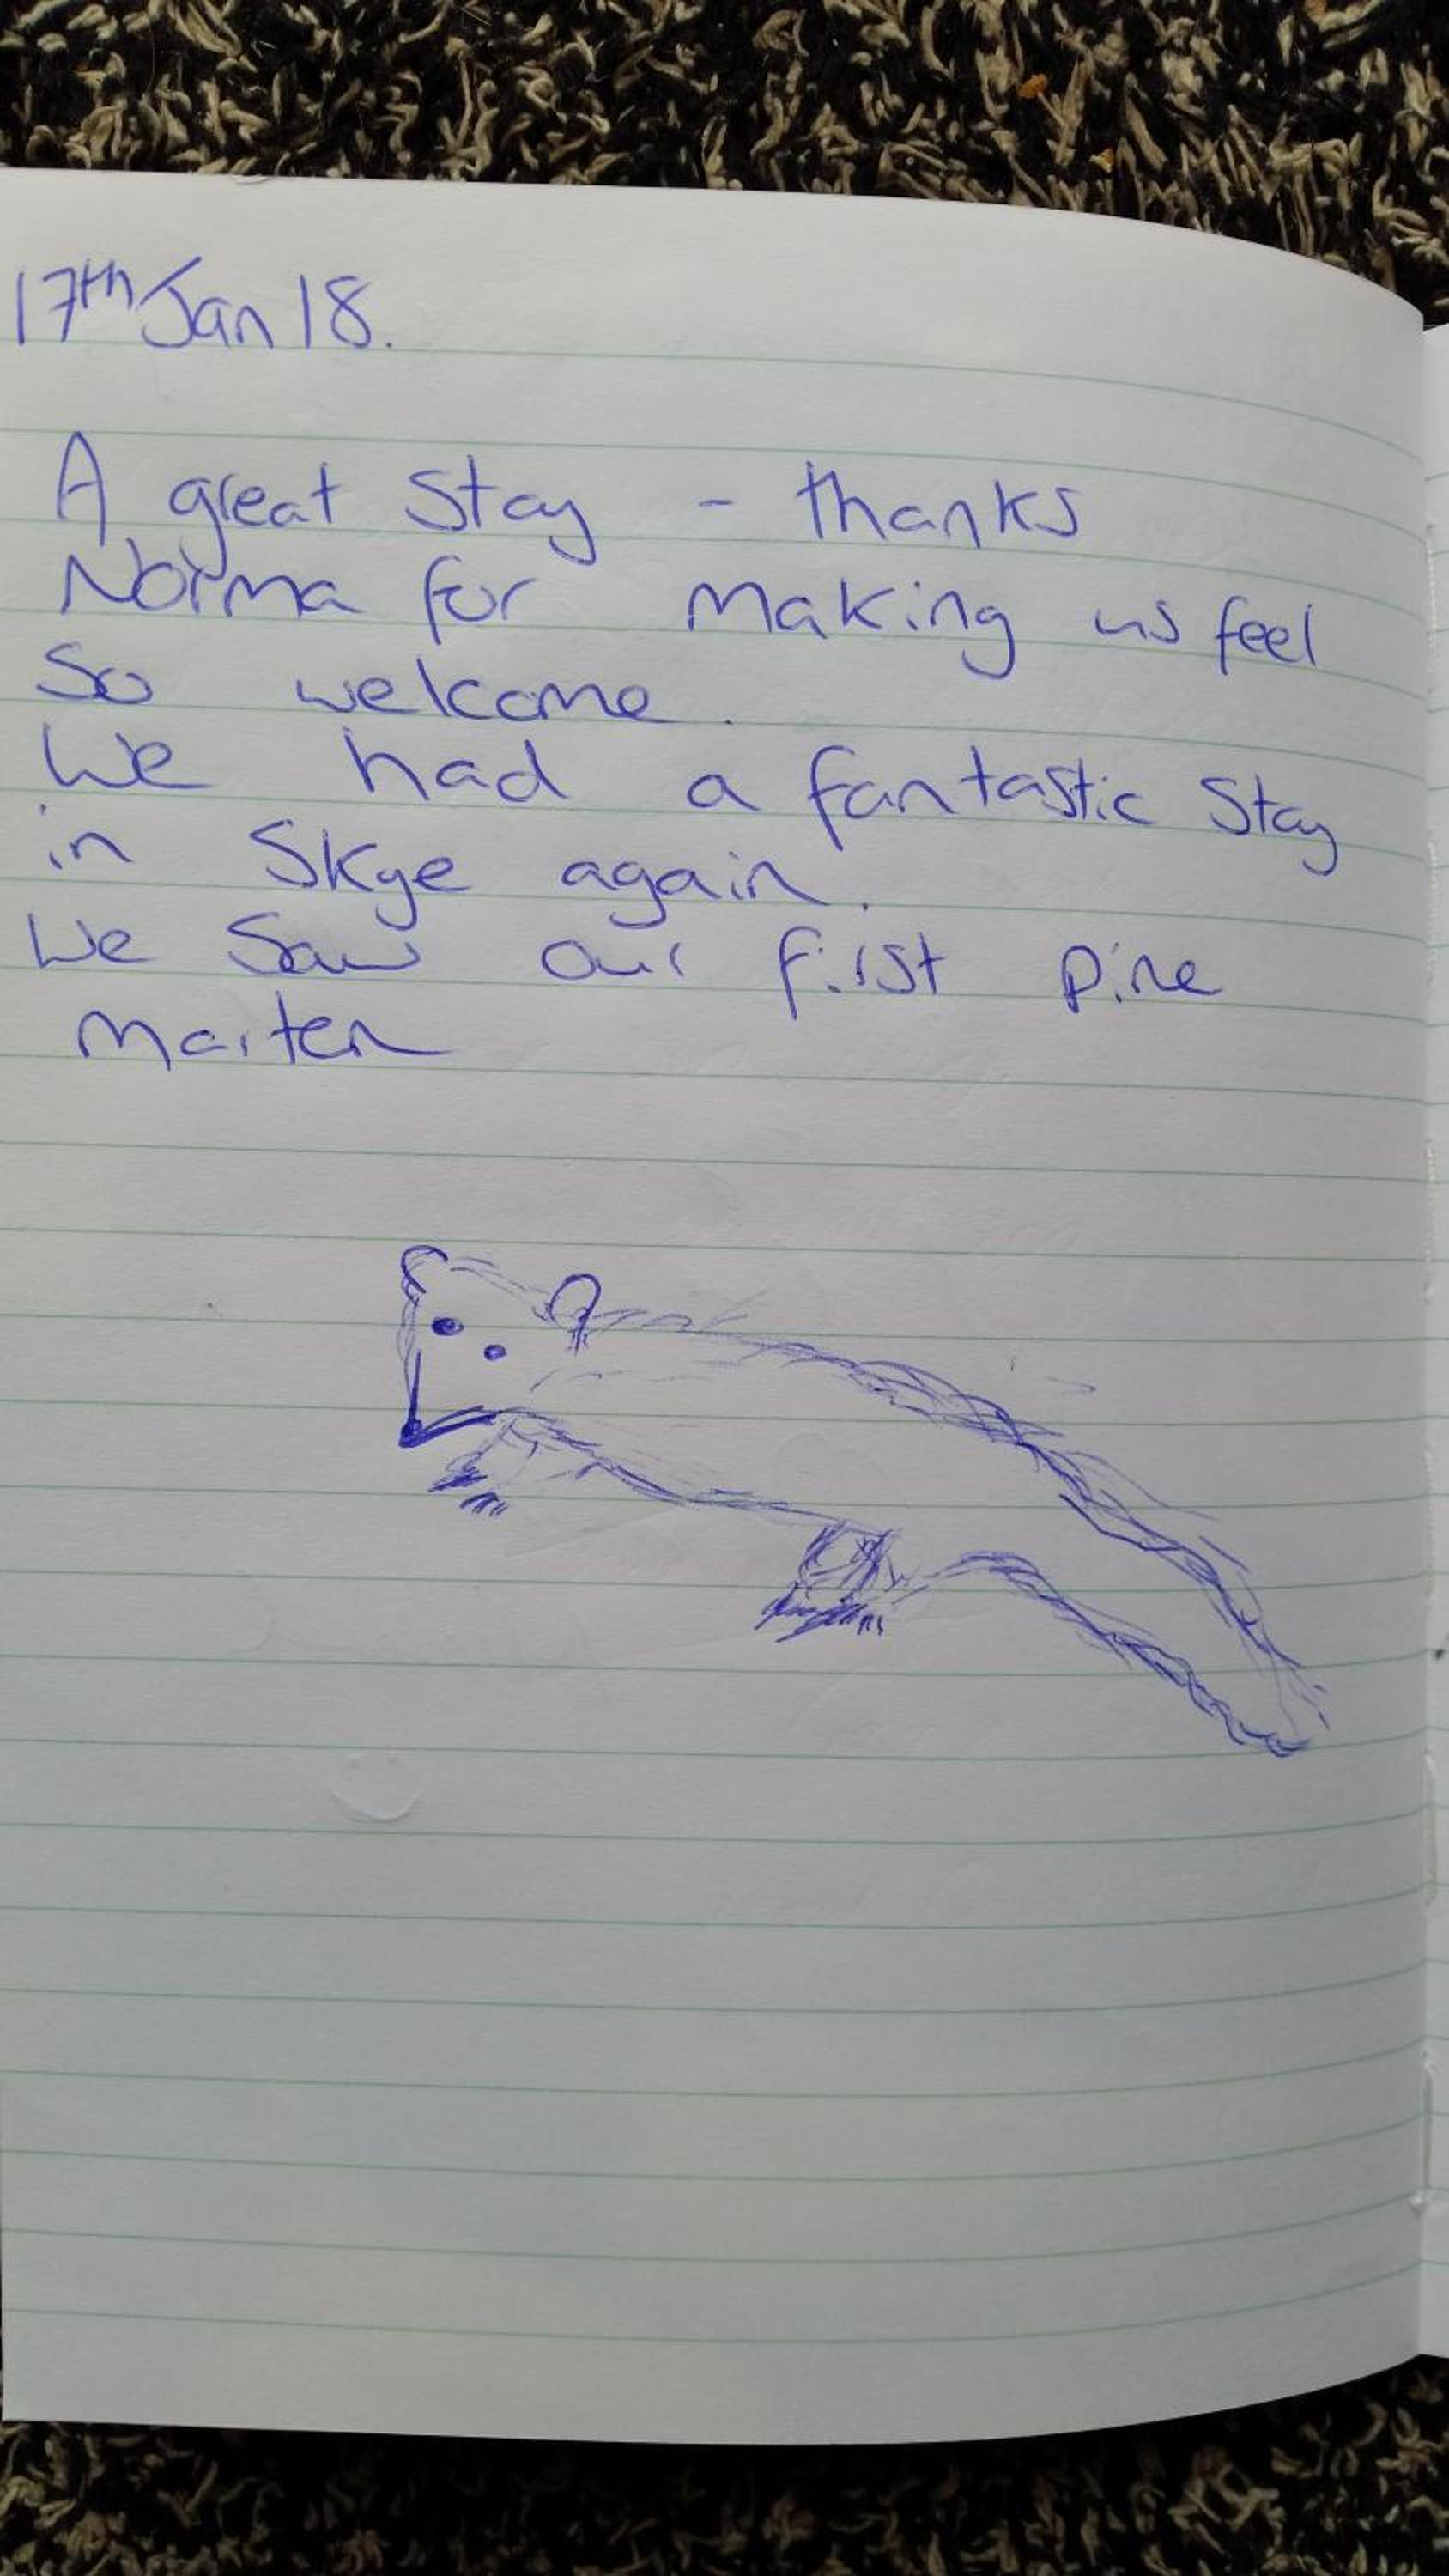 17th Jan 18.
A great stay - thanks
Norma for making us feel
so welcome.
We had a fantastic stay
in Skye again.
We saw our first pine
marten